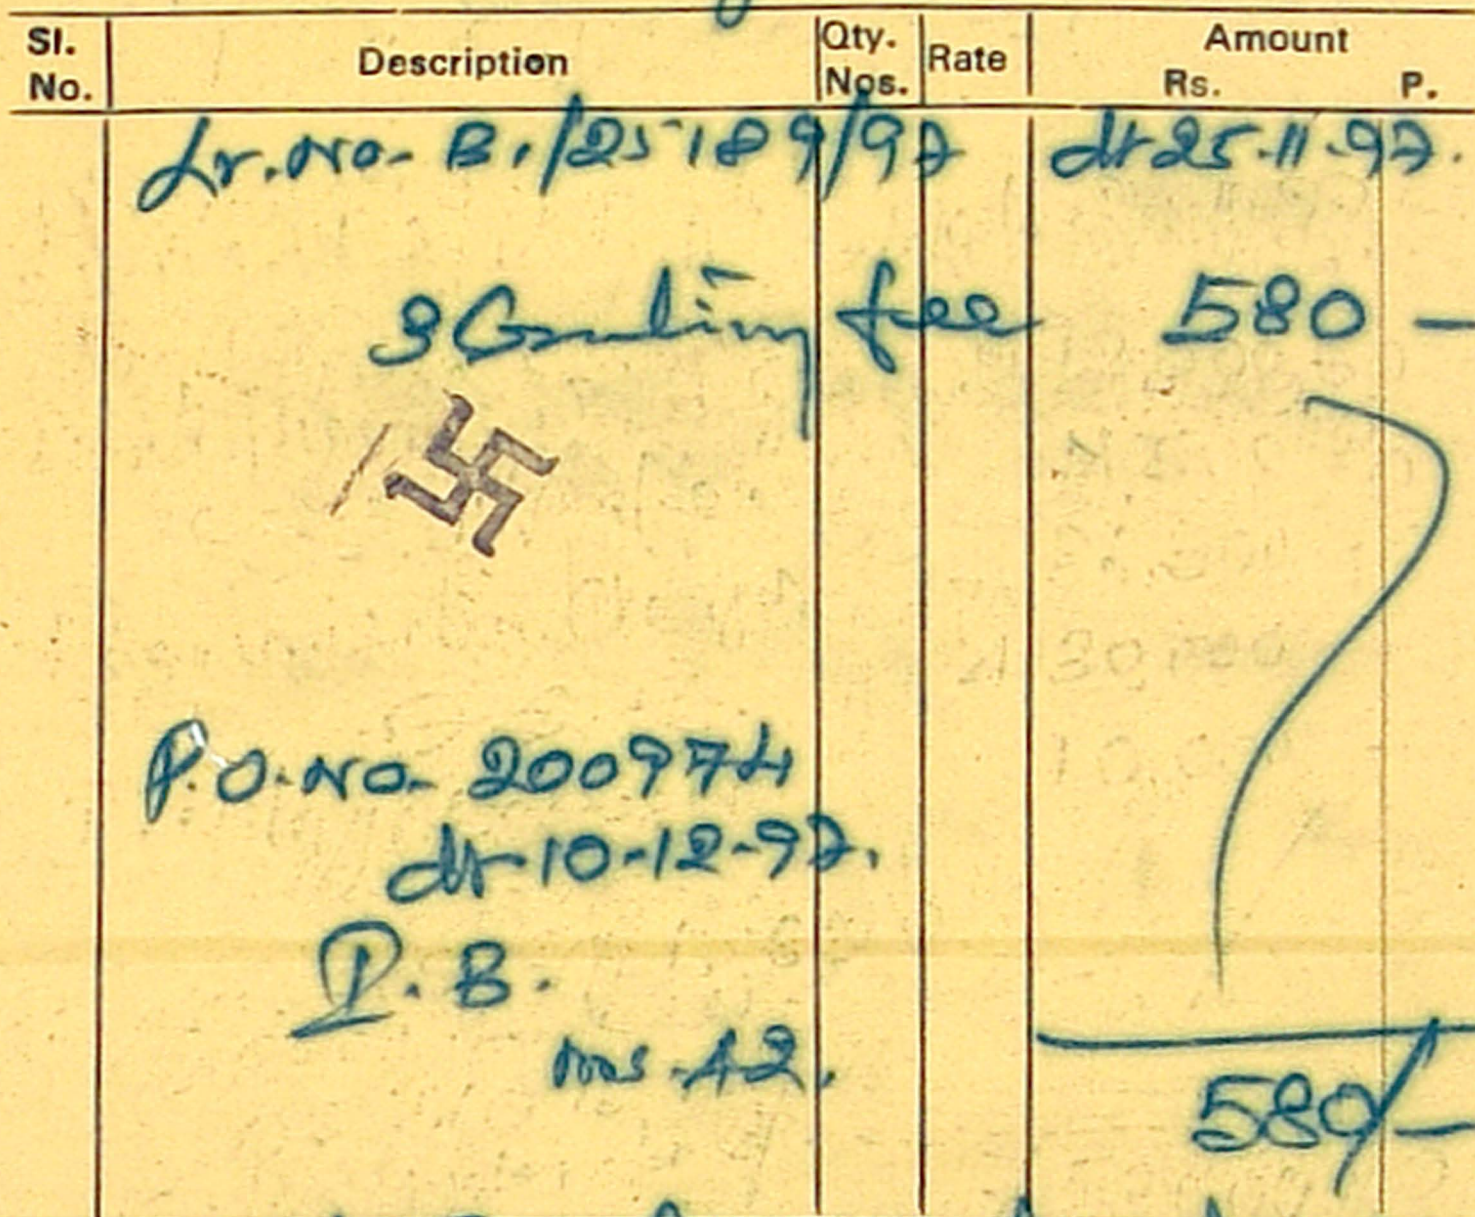 Sl. No. Description Qty. Nos. Rate Amount Rs. P.
Lr. No- B./25189/97 dt 25.11.97.
fee 580 —
P.O. No- 200974
dt-10-12-97.
I.B.
Ms-42.
580/-